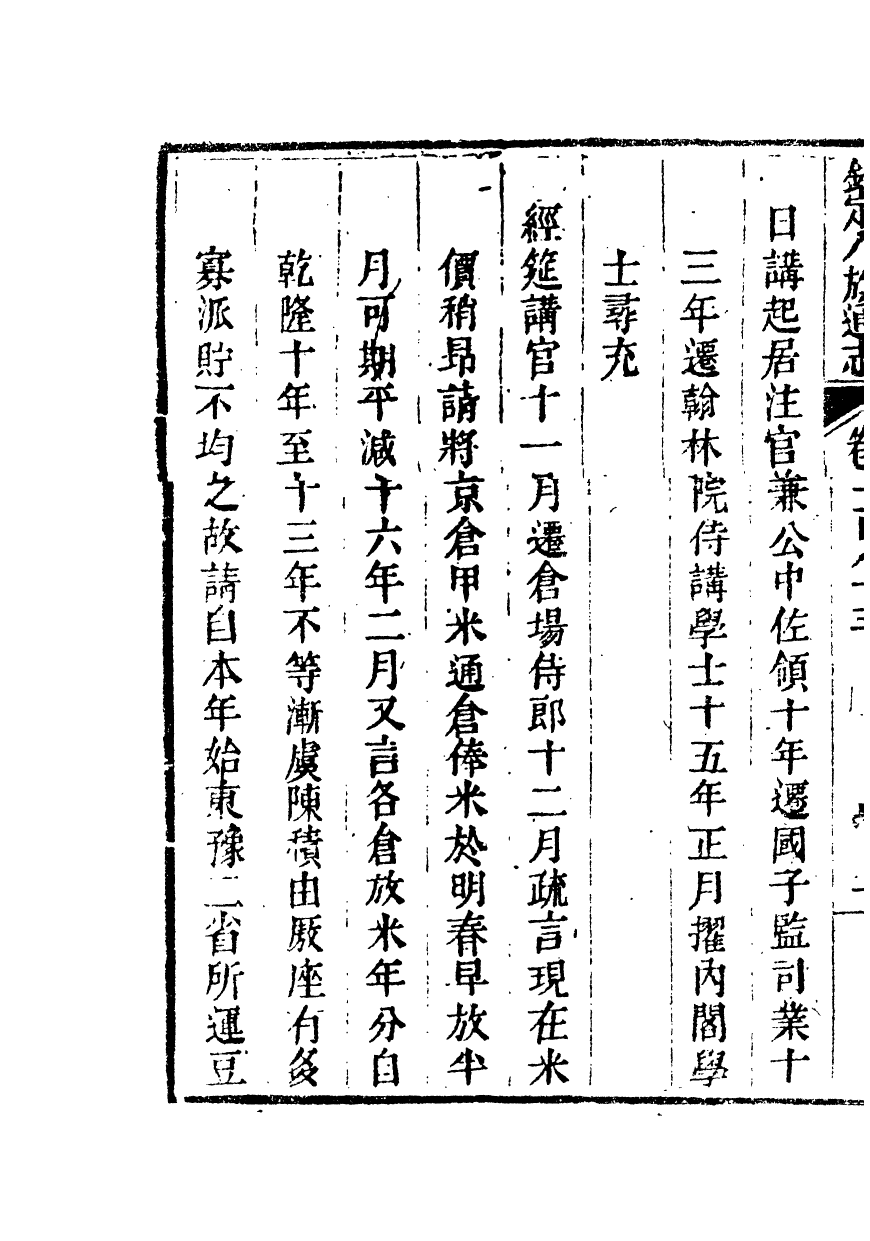 日講起居注官兼公中佐領十年遷國子監司業十
三年遷翰林院侍講學士十五年正月擢內閣學
士尋充
經筵講官十一月遷倉場侍郎十二月疏言現在米
價稍昂請將京倉甲米通倉俸米於明春早放半
月可期平減十六年二月又言各倉放米年分自
乾隆十年至十三年不等漸虞陳積由厫座有多
寡派貯不均之故請自本年始東豫二省所運豆